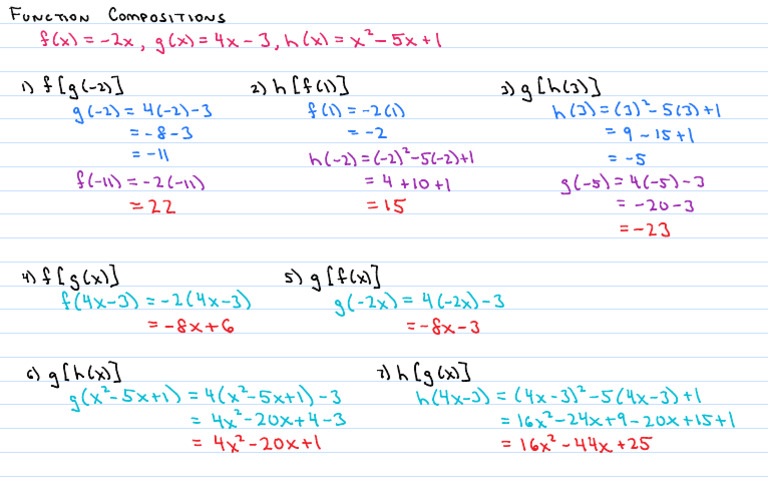 FUNCTION COMPOSITIONS
f(x) = -2x, g(x) = 4x - 3, h(x) = x² - 5x + 1
1) f[g(-2)]
g(-2) = 4(-2) - 3
= -8 - 3
= -11
f(-11) = -2(-11)
= 22
2) h[f(1)]
f(1) = -2(1)
= -2
h(-2) = (-2)² - 5(-2) + 1
= 4 + 10 + 1
= 15
3) g[h(3)]
h(3) = (3)² - 5(3) + 1
= 9 - 15 + 1
= -5
g(-5) = 4(-5) - 3
= -20 - 3
= -23
4) f[g(x)]
f(4x - 3) = -2(4x - 3)
= -8x + 6
5) g[f(x)]
g(-2x) = 4(-2x) - 3
= -8x - 3
6) g[h(x)]
g(x² - 5x + 1) = 4(x² - 5x + 1) - 3
= 4x² - 20x + 4 - 3
= 4x² - 20x + 1
7) h[g(x)]
h(4x - 3) = (4x - 3)² - 5(4x - 3) + 1
= 16x² - 24x + 9 - 20x + 15 + 1
= 16x² - 44x + 25